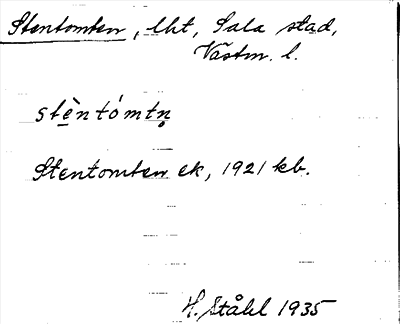 Stentomten, lht, Sala stad,
Västm. l.
stè̱ntómtn̥
Stentomten ek, 1921 kb.
H. Ståhl 1935